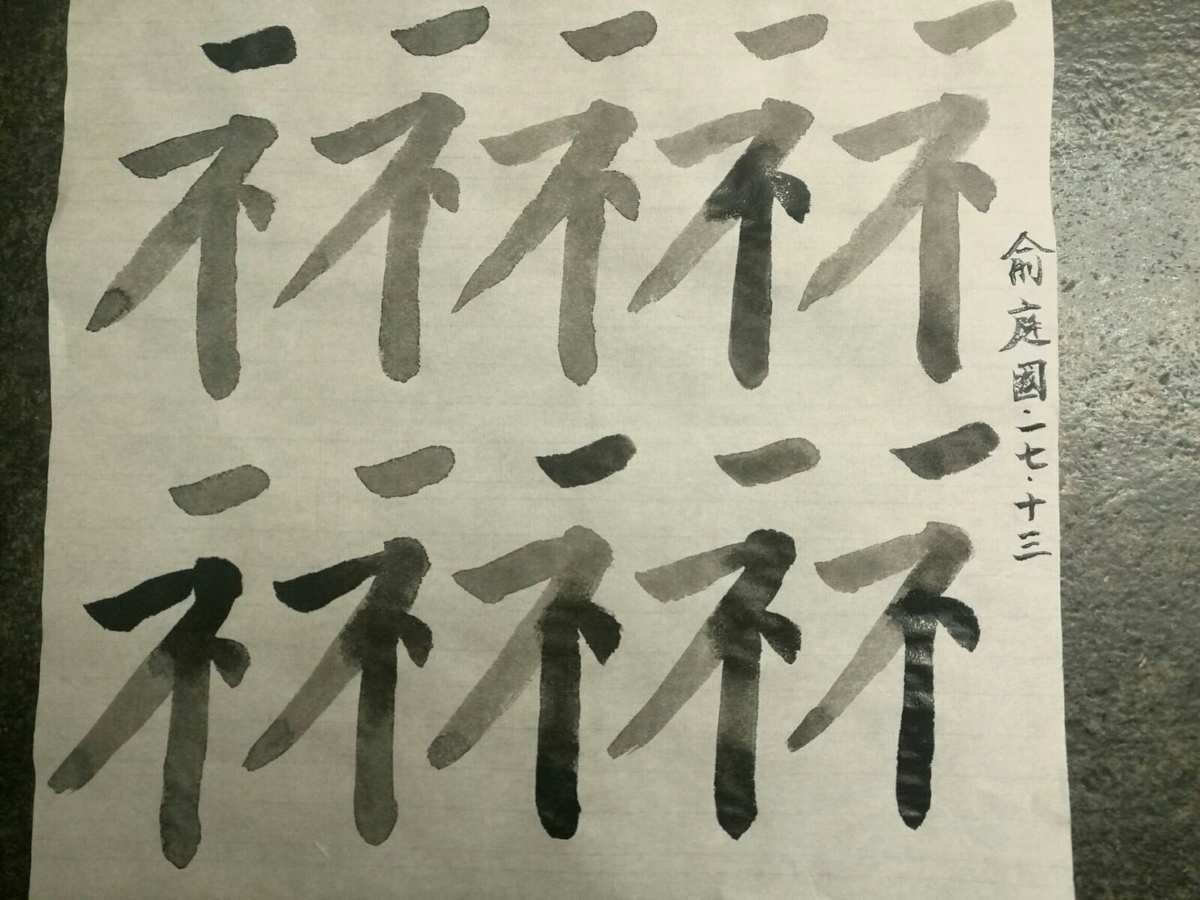 礻礻礻礻礻
礻礻礻礻礻
俞庭國·二七·十三